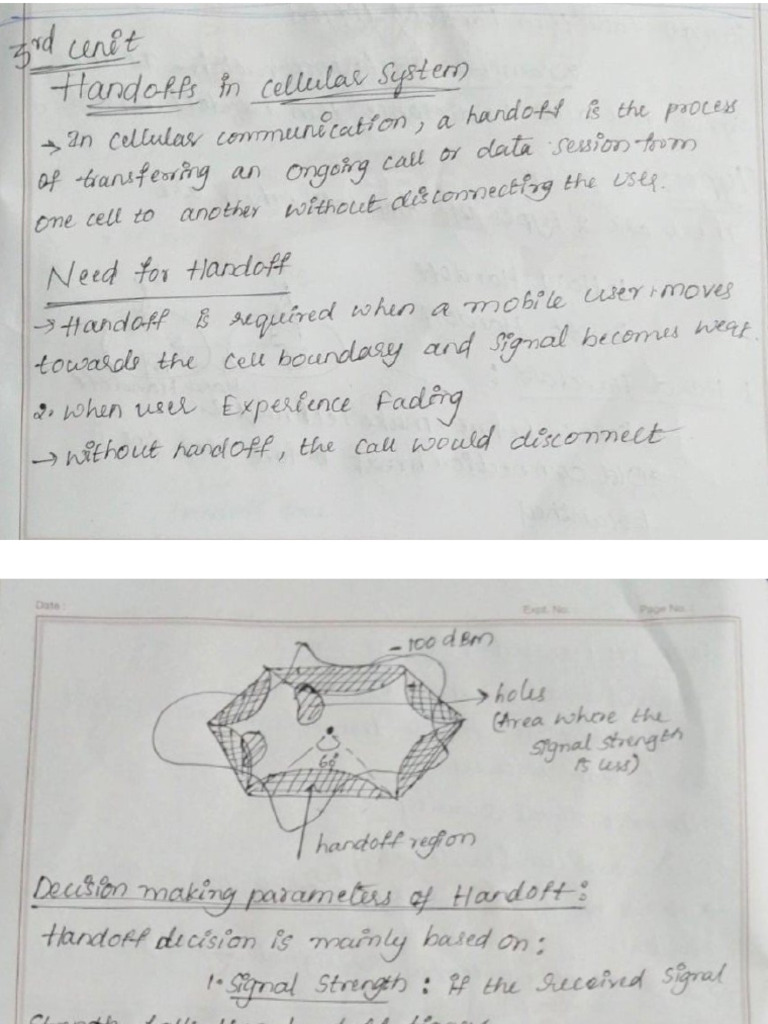 3rd unit
Handoffs in cellular system
→ In cellular communication, a handoff is the process
of transferring an ongoing call or data session from
one cell to another without disconnecting the user.
Need for Handoff
→ Handoff is required when a mobile user moves
towards the cell boundary and signal becomes weak.
2. when user Experience Fading
→ without handoff, the call would disconnect
Date :
Expt. No.
Page No. :
-100 dBm
holes
(Area where the
signal strength
is less)
60°
handoff region
Decision making parameters of Handoff:
Handoff decision is mainly based on:
1. Signal Strength : if the received signal